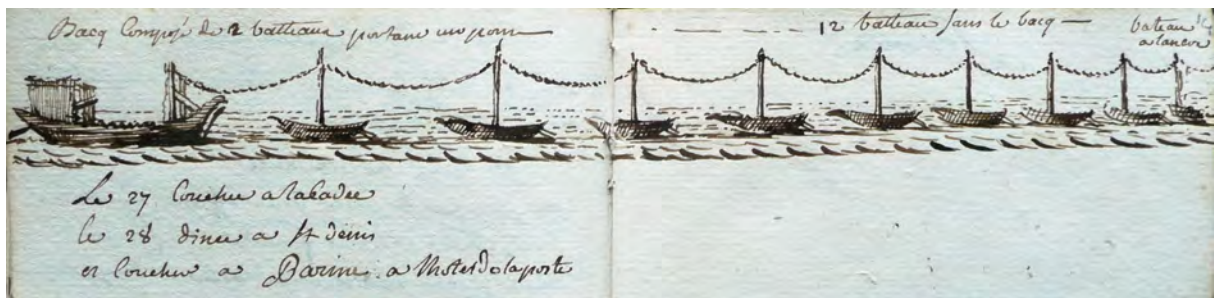 Bacq Composé de 2 batteaux portant un pont
12 batteau sans le bacq
bateau
a lancre
Le 27 Couchee a
le 28 dinee a St denis
et Couchee a a lhotel de la poste